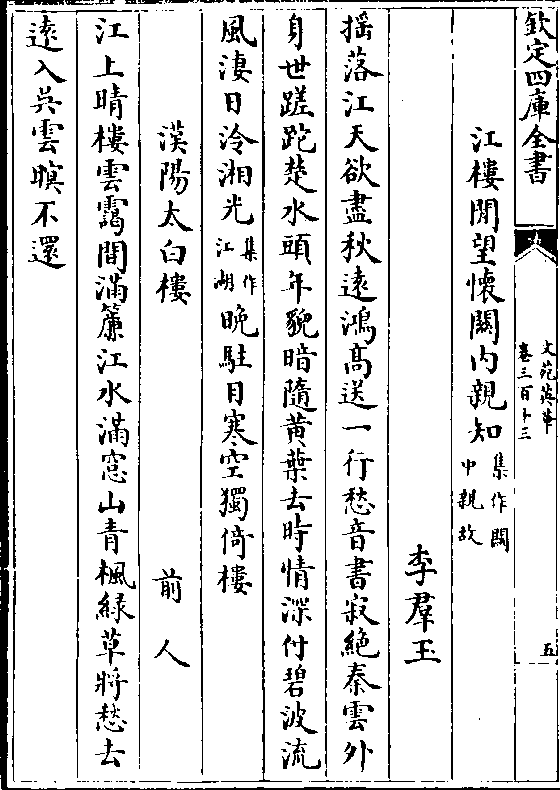 欽定四庫全書
文苑英華
卷三百十三
五
江樓閒望懷關内親知集作關中親故
李羣玉
揺落江天欲盡秋逺鴻髙送一行愁音書寂絶秦雲外
身世蹉跎楚水頭年貌暗隨黄葉去時情深付碧波流
風淒日冷湘光集作江湖晩駐目寒空獨倚樓
漢陽太白樓
前人
江上晴樓雲靄間滿簾江水滿窓山青楓緑草將愁去
逺入吳雲暝不還